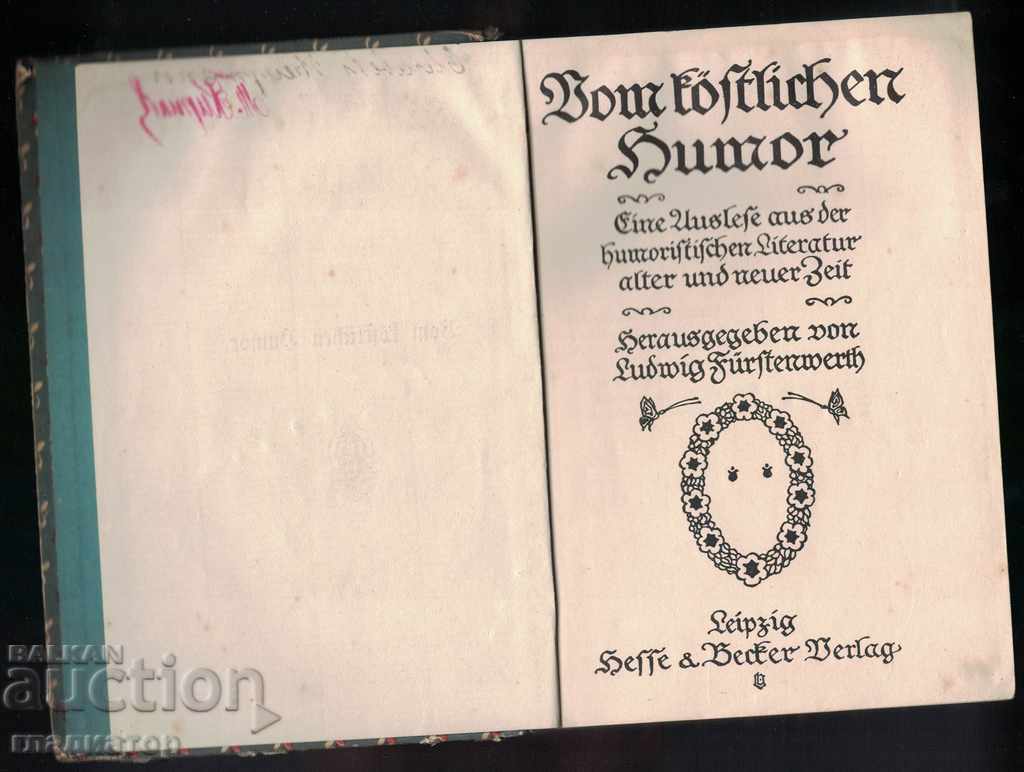 Vom köstlichen
Humor
Eine Auslese aus der
humoristischen Literatur
alter und neuer Zeit
Herausgegeben von
Ludwig Fürstenwerth
Leipzig
Hesse & Becker Verlag
Vom köstlichen Humor.
BALKAN
auction
гладиатор